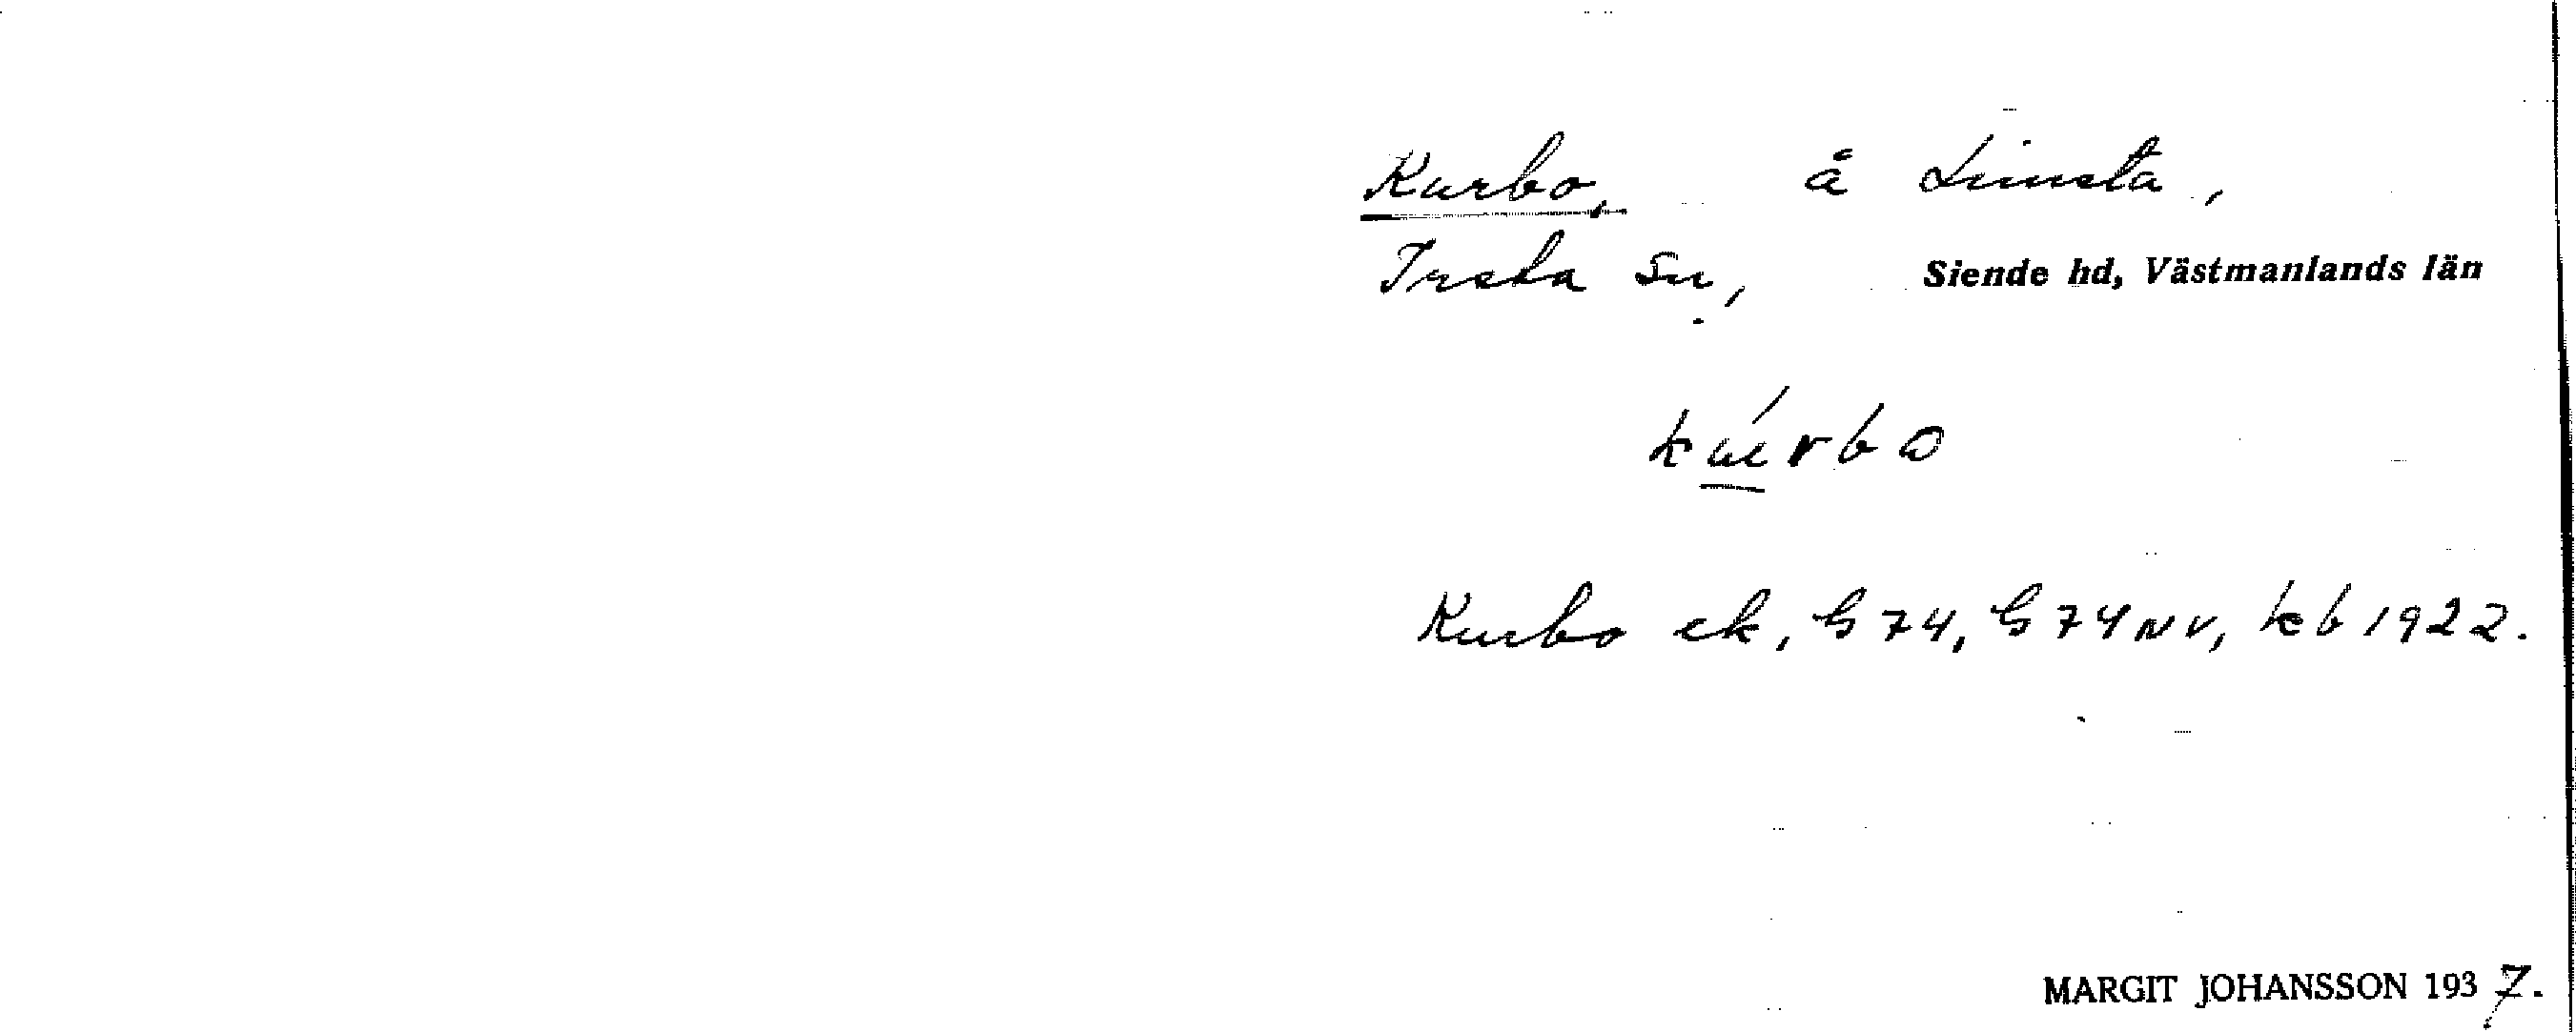 Kurbo, å Limsta,
Irsta sn, Siende hd, Västmanlands län
kúrbo
Kurbo ek, G 74, G 74 NV, kb 1922.
MARGIT JOHANSSON 1937.